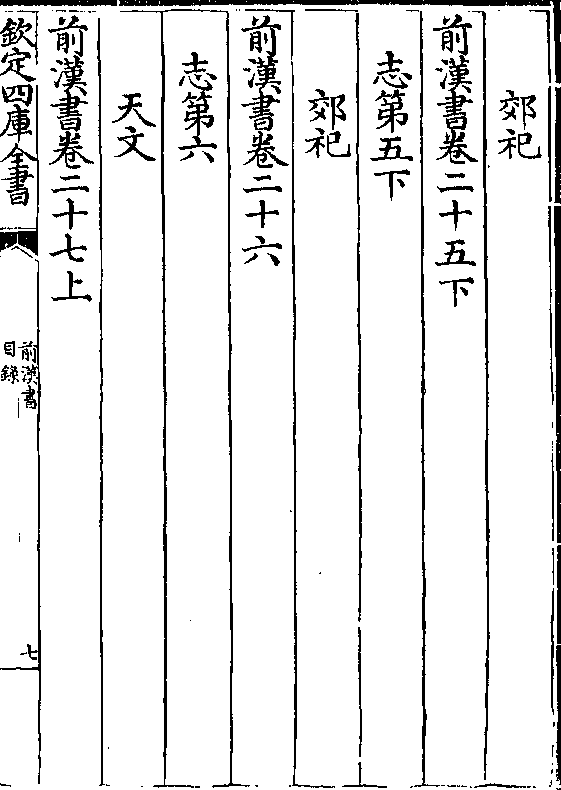 郊祀
前漢書卷二十五下
志第五下
郊祀
前漢書卷二十六
志第六
天文
前漢書卷二十七上
欽定四庫全書
前漢書
目錄
七